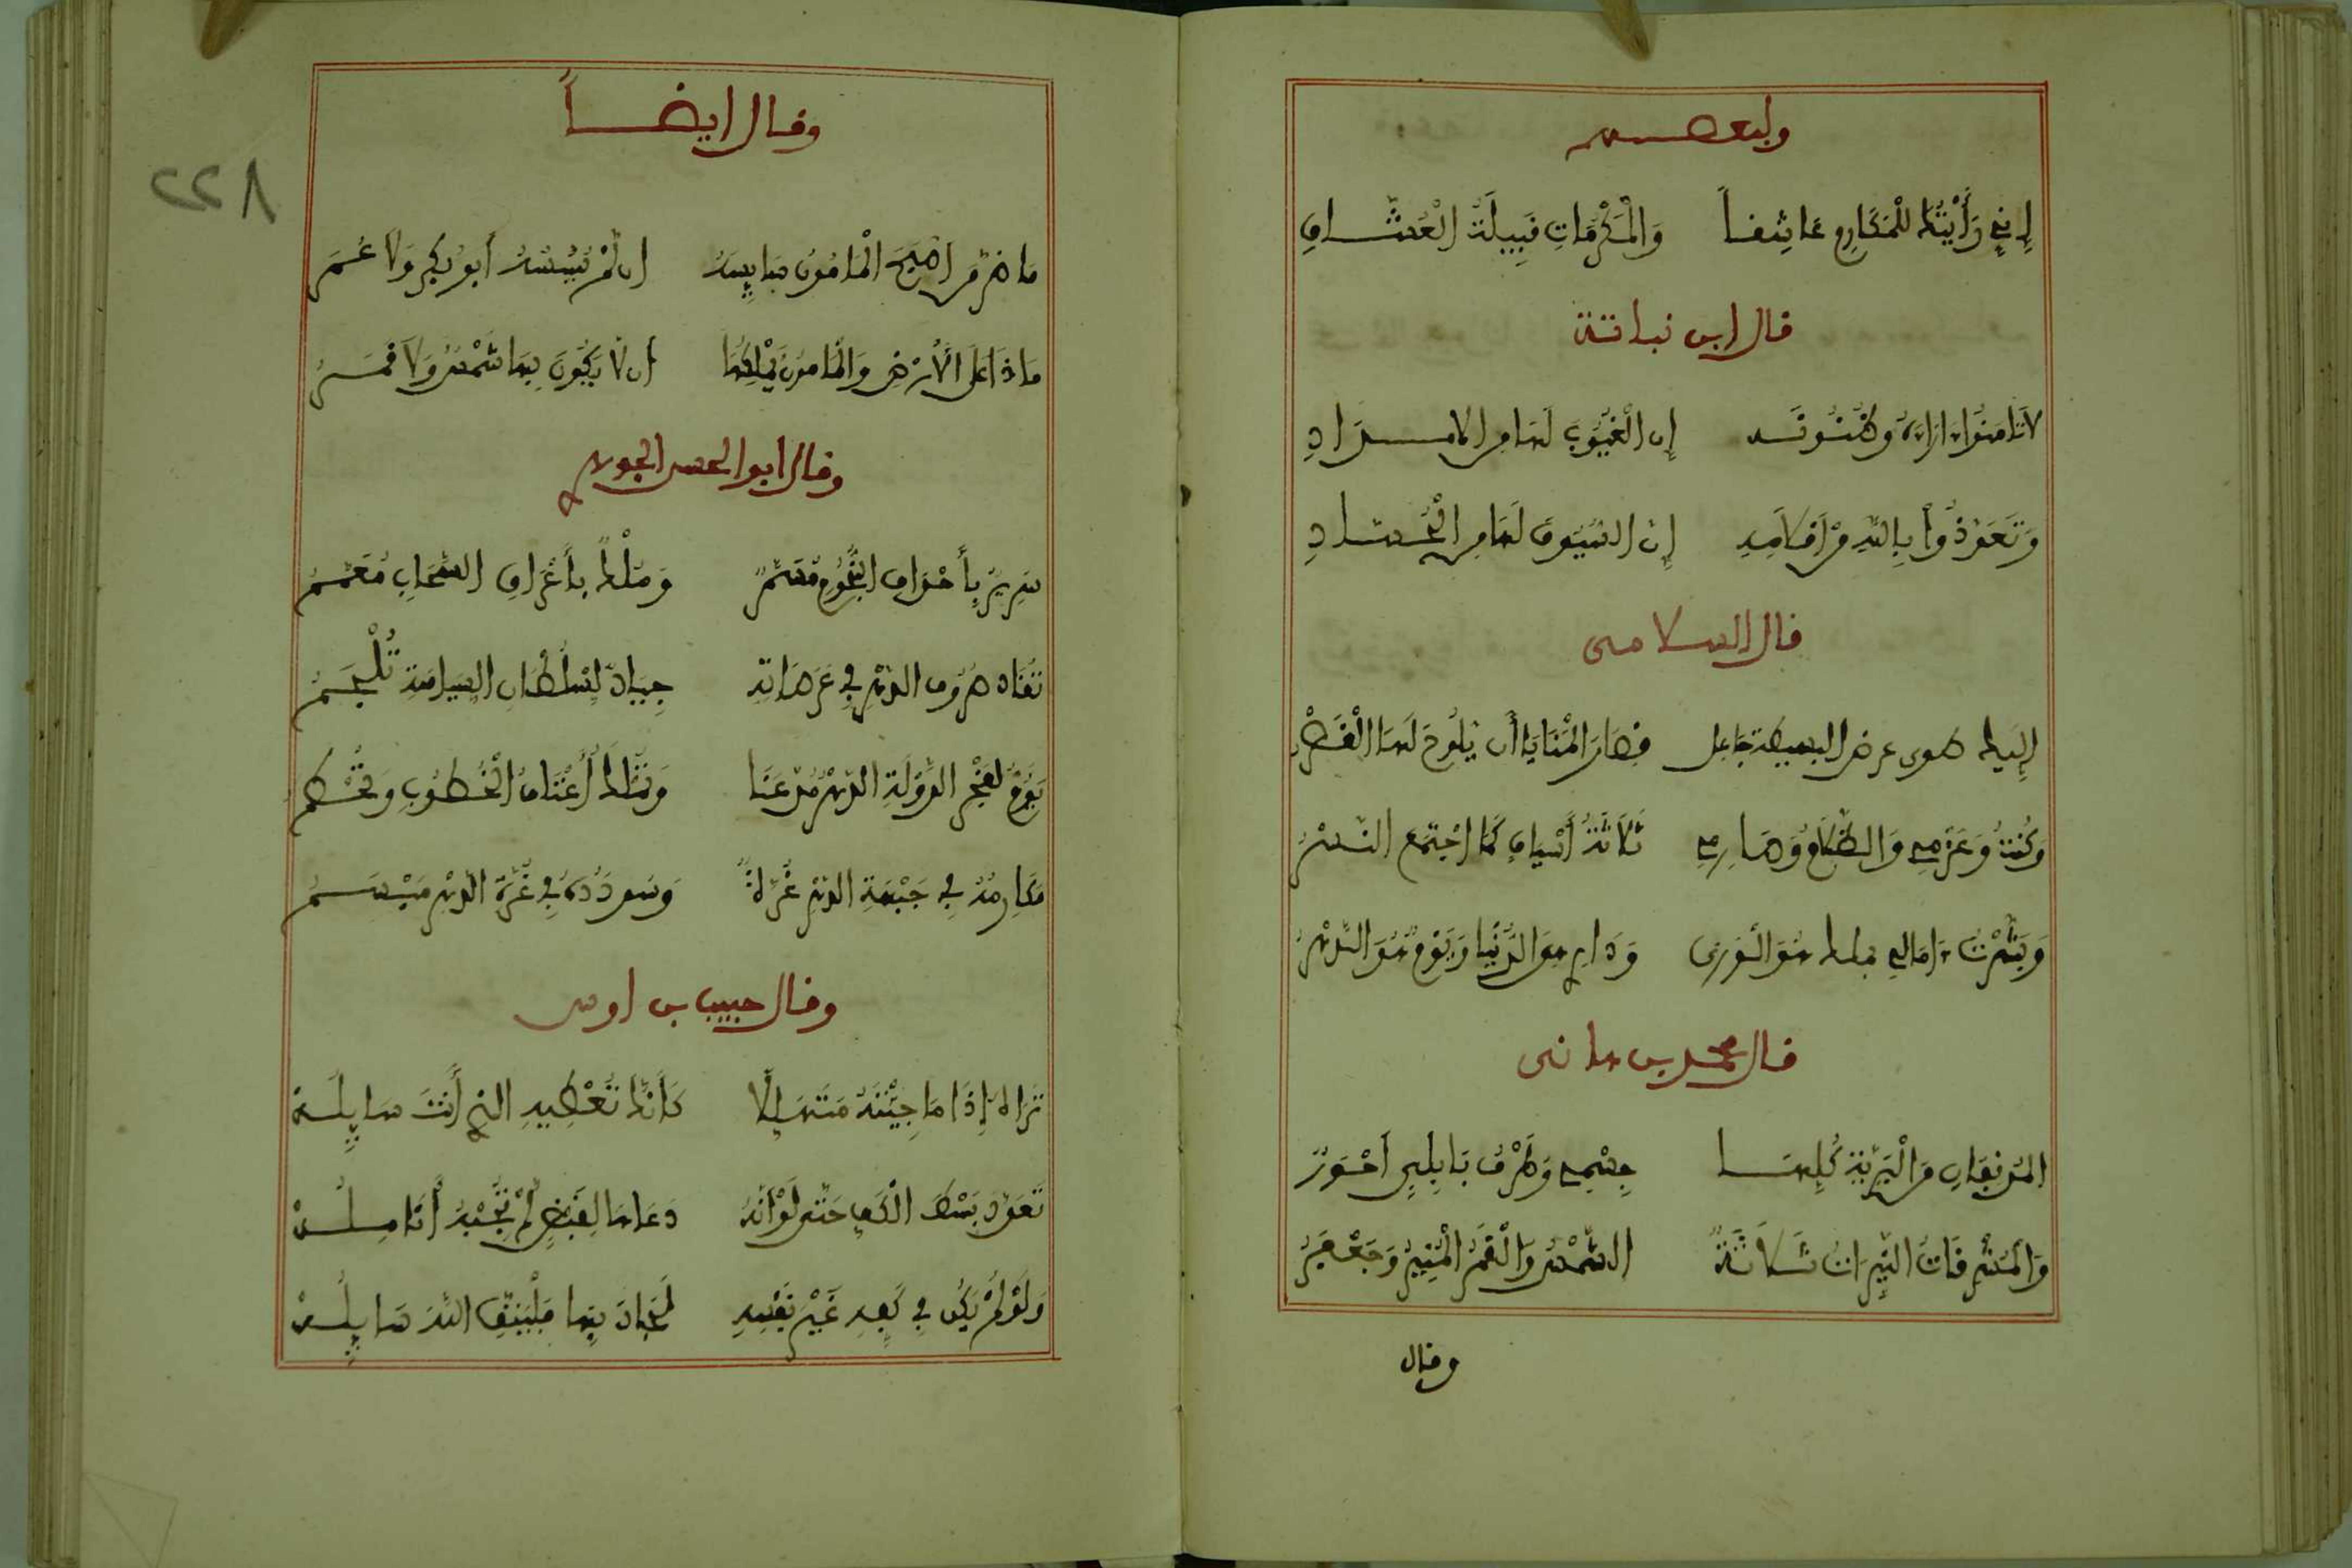 ولبعضهم
إِنِّي رَأَيْتُكَ لِلْمَكَارِمِ عَاشِقاً وَالْمَكْرُمَاتِ قَبِيلَةُ الْعُشَّاقِ
قال ابن نباتة
لا تَامَنُوا ءارَاءَهُ وظُنُونَه إِن الْغُيُوبَ لها مِن الامدادِ
وَتَعَوَّذُوا بِاللهِ مِنْ أَقْلَامِهِ إِنَّ السُّيُوفَ لَهَا مِن الْحُسَّادِ
قال السلامى
إِلَيْكَ طوى عرض البسيطة جَاعِل قصَارَ الْمَنَايَا أَن يَلُوحَ لَهَا الْقَصْرُ
وَكُنْتُ وَعَزْمِي وَالظَّلَامُ وَصَارِمِي ثَلَاثَةُ أَشْيَاءٍ كَمَا اجْتَمَعَ النَّسْرُ
وَبَشَّرْتُ ءامَالِي بملك هُوَ الْوَرَى وَدَارٍ هِيَ الدُّنْيَا وَيَوْمٍ هُوَ الدَّهْرُ
قال محمد بن هانى
المُدْنَفَانِ مِنَ الْبَرِيَّةِ كُلِّهَا جِسْمِي وَطَرْفٌ بَابِلِيٌّ أَحْوَرُ
وَالْمُشْرِقَاتُ النَّيِّرَاتُ ثَلَاثَةٌ الشَّمْسُ وَالْقَمَرُ الْمُنِيرُ وَجَعْفَرُ
وقال
٢٢٨
وقال ايضاً
مَا ضَرَّ مَن أَصْبَحَ الْمَامُونُ سَايِسَهُ إن لَمْ يَسُسْهُ أَبُو بَكْرٍ وَلَا عُمَرُ
مَاذَا عَلَى الْأَرْضِ وَالْمَامُونُ يَمْلِكُهَا أن لا يَكُونَ بِهَا شَمْسٌ وَلَا قَمَرُ
وقال ابو الحسن الجوهري
سَرِيرٌ بِأَحْوَافِ النُّجُومِ مُسَمَّرٌ وَمُلْكٌ بِأَعْرَافِ السَّحَابِ مُعَمَّمُ
تُقَادُ صُرُوفُ الدَّهْرِ فِي عَرَصَاتِهِ جِيَادٌ لِسُلْطَانِ السِّيَاسَةِ تُلْجَمُ
يَقُومُ لِفَخْرِ الدَّوْلَةِ الدَّهْرُ مُذْعِنَا وَتَمْلِكُ أَعْنَاقُ الْخُطُوبِ وَتُحْكَمُ
مَكَارِمُهُ فِي جَبْهَةِ الدَّهْرِ غُرَّةٌ وَسودَدُهُ فِي غُرَّةِ الدَّهْرِ مِيْسَمُ
وقال حبيب بن اوس
تَرَاهُ إِذَا مَا جِئْتَهُ مُتَهَلِّلًا كَأَنَّكَ تُعْطِيهِ الذي أَنْتَ سَايِلُهْ
تَعَوَّدَ بَسْطَ الْكَفِّ حَتَّى لَوْ أَنَّهُ دَعَاهَا لِقَبْضٍ لَمْ تُجِبْهُ أَنَامِلُهْ
وَلَوْ لَمْ يَكُن فِي كَفِّهِ غَيْرُ نَفْسِهِ لَجَادَ بِهَا فَلْيَتَّقِ اللهَ سَايِلُهْ